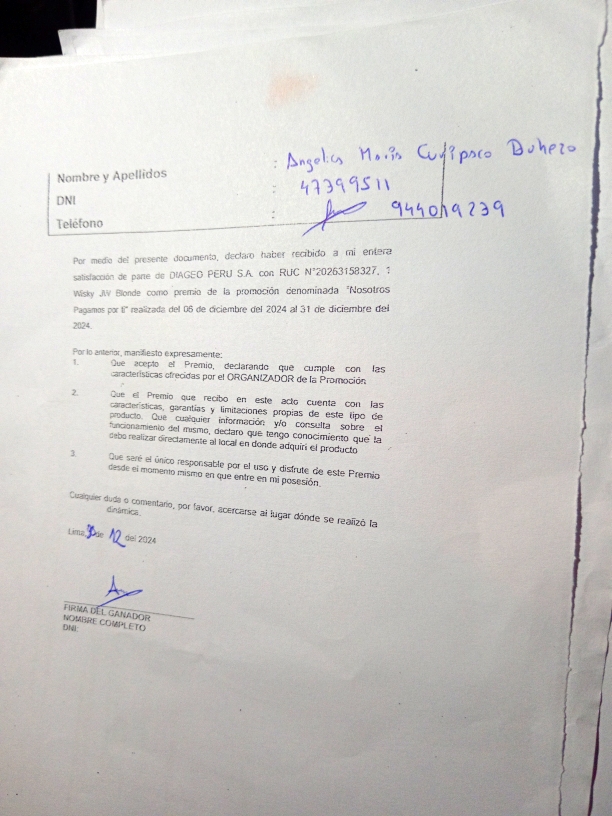 Nombre y Apellidos : Angelica Maria Cusipaco Duhezo
DNI : 47399511
Teléfono : 944019239
Por medio del presente documento, declaro haber recibido a mi entera
satisfacción de parte de DIAGEO PERU S.A. con RUC N°20263158327, 1
Wisky JW Blonde como premio de la promoción denominada "Nosotros
Pagamos por ti" realizada del 06 de diciembre del 2024 al 31 de diciembre del
2024.
Por lo anterior, manifiesto expresamente:
1. Que acepto el Premio, declarando que cumple con las
características ofrecidas por el ORGANIZADOR de la Promoción
2. Que el Premio que recibo en este acto cuenta con las
características, garantías y limitaciones propias de este tipo de
producto. Que cualquier información y/o consulta sobre el
funcionamiento del mismo, declaro que tengo conocimiento que la
debo realizar directamente al local en donde adquirí el producto
3. Que seré el único responsable por el uso y disfrute de este Premio
desde el momento mismo en que entre en mi posesión.
Cualquier duda o comentario, por favor, acercarse al lugar dónde se realizó la
dinámica.
Lima, de 12 del 2024
FIRMA DEL GANADOR
NOMBRE COMPLETO
DNI: